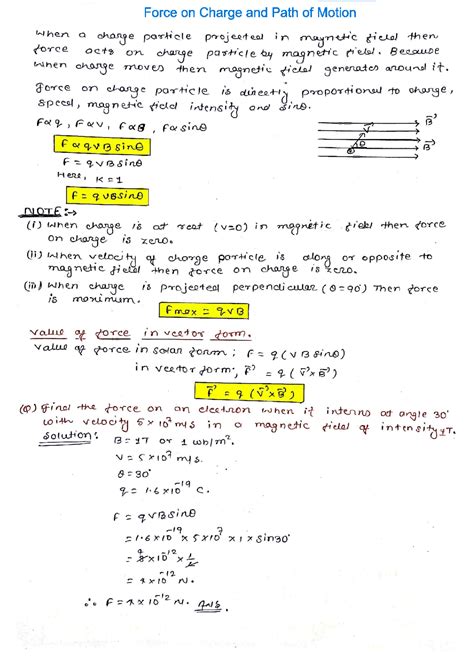 Force on Charge and Path of Motion
When a charge particle projected in magnetic field then
force acts on charge particle by magnetic field. Because
when charge moves then magnetic field generates around it.
Force on charge particle is directly proportional to charge,
speed, magnetic field intensity and sinθ.
F∝q, F∝V, F∝B, F∝sinθ
F ∝ qVB sinθ
F = qVB sinθ
Here, K=1
F = qVB sinθ
V⃗
θ
B⃗
B⃗
NOTE:→
(i) When charge is at rest (V=0) in magnetic field then force
on charge is zero.
(ii) When velocity of charge particle is along or opposite to
magnetic field then force on charge is zero.
(iii) When charge is projected perpendicular (θ=90°) then force
is maximum.
Fmax = qVB
Value of force in vector form.
Value of force in scalar form; F = q(VB sinθ)
in vector form; F⃗ = q(V⃗×B⃗)
F⃗ = q(V⃗×B⃗)
(Q) Find the force on an electron when it interns at angle 30°
with velocity 5×10⁷ m/s in a magnetic field of intensity 1T.
Solution:
B = 1T or 1 wb/m².
V = 5×10⁷ m/s.
θ = 30°
q = 1.6×10⁻¹⁹ C.
F = qVB sinθ
= 1.6×10⁻¹⁹ × 5×10⁷ × 1 × sin30°
= 8×10⁻¹² × 1/2
= 4×10⁻¹² N.
∴ F = 4×10⁻¹² N. Ans.